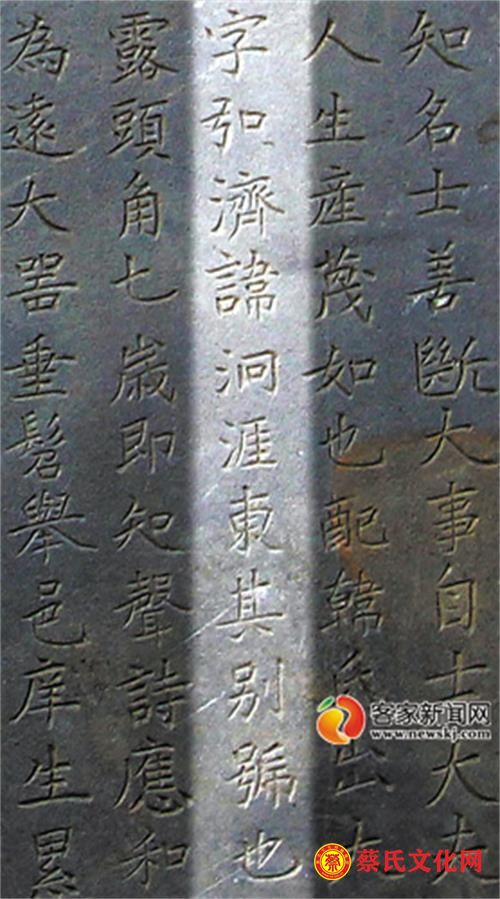 知名士善斷大事自士大夫
人生産蔑如也配韓氏出
字弘濟諱泂涯東其别號也
露頭角七歲即知聲詩應和
為遠大器垂髫舉邑庠生累
客家新闻网
www.newskj.com
蔡氏文化网